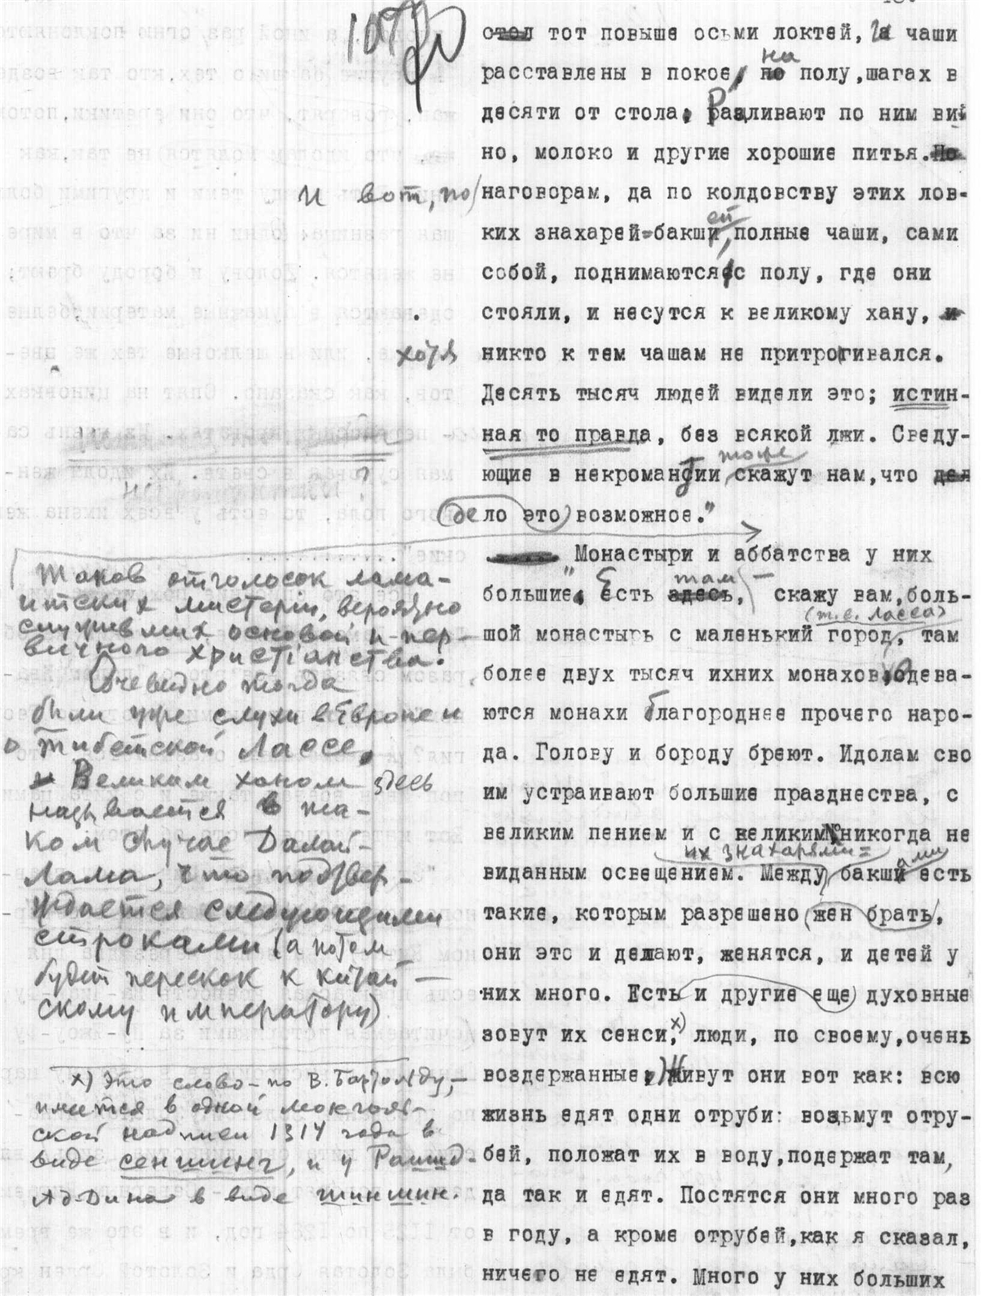 107
стол тот повыше осьми локтей, и чаши
расставлены в покое, на полу, шагах в
десяти от стола. Разливают по ним ви-
но, молоко и другие хорошие питья. По
и вот, по наговорам, да по колдовству этих лов-
ких знахарей-бакшей, полные чаши, сами
собой, поднимаются с полу, где они
стояли, и несутся к великому хану, и
хотя никто к тем чашам не притрогивался.
Десять тысяч людей видели это; истин-
ная то правда, без всякой лжи. Сведу-
ющие в некромантии тоже скажут нам, что дел
дело это возможное."
Монастыри и аббатства у них
"большие. Есть здесь, там, — скажу вам, боль-
шой монастырь с маленький город, (т.е. Ласса) там
более двух тысяч ихних монахов, Одева-
ются монахи благороднее прочего наро-
да. Голову и бороду бреют. Идолам сво
им устраивают большие празднества, с
великим пением и с великим никогда не
виданным освещением. Между их знахарями= бакшами есть
такие, которым разрешено жен брать,
они это и делают, женятся, и детей у
них много. Есть и другие еще духовные
зовут их сенси, х) люди, по своему, очень
воздержанные, Живут они вот как: всю
жизнь едят одни отруби: возьмут отру-
бей, положат их в воду, подержат там,
да так и едят. Постятся они много раз
в году, а кроме отрубей, как я сказал,
ничего не едят. Много у них больших
Таков отголосок лама-
итских мистерий, вероятно
служивших основой и пер-
вичного христіанства.
Очевидно тогда
были уже слухи в Европе и
о Тибетской Лассе,
и Великим ханом здесь
называется в та-
ком случае Далай-
Лама, что подтвер-
ждается следующими
строками (а потом
будет перескок к китай-
скому императору)
х) Это слово — по В. Бартольду, —
имеется в одной монголь-
ской надписи 1314 года в
виде сеншинг, и у Рашид-
Ад-Дина в виде шиншин.